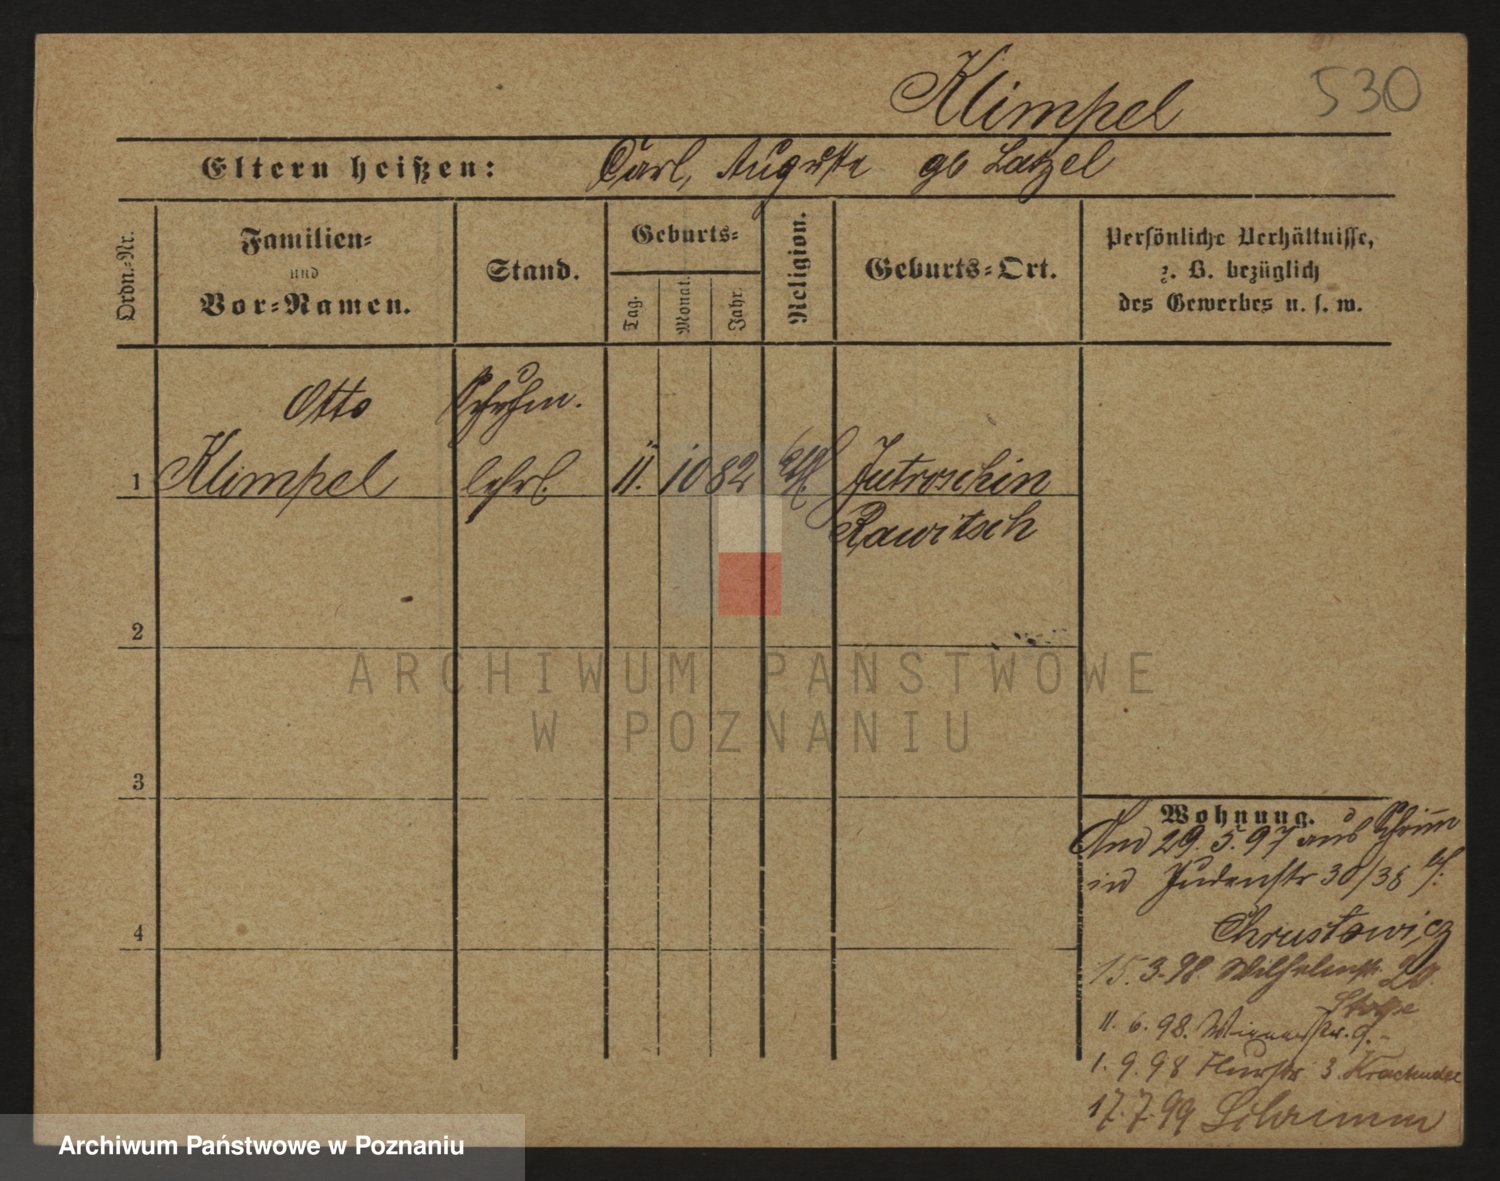 Klimpel
530
Eltern heißen: Carl, Auguste gb Latzel
Ordn.-Nr.
Familien-
und
Vor-Namen.
Stand.
Geburts-
Tag.
Monat.
Jahr.
Religion.
Geburts-Ort.
Persönliche Verhältnisse,
z. B. bezüglich
des Gewerbes u. s. w.
Otto Schuhm.
1 Klimpel lehrl. 11. 10 82 Jutroschin
Rawitsch
2
ARCHIWUM PAŃSTWOWE
W POZNANIU
3
4
Wohnung.
29.5.97 aus Schrimm
in Judenstr 30/38 b/:
Chrustowicz
15.3.98 Wilhelmstr. 20.
11.6.98. Wienerstr. 9.
1.9.98 Flurstr 3.
17.7.99 Schrimm
Archiwum Państwowe w Poznaniu